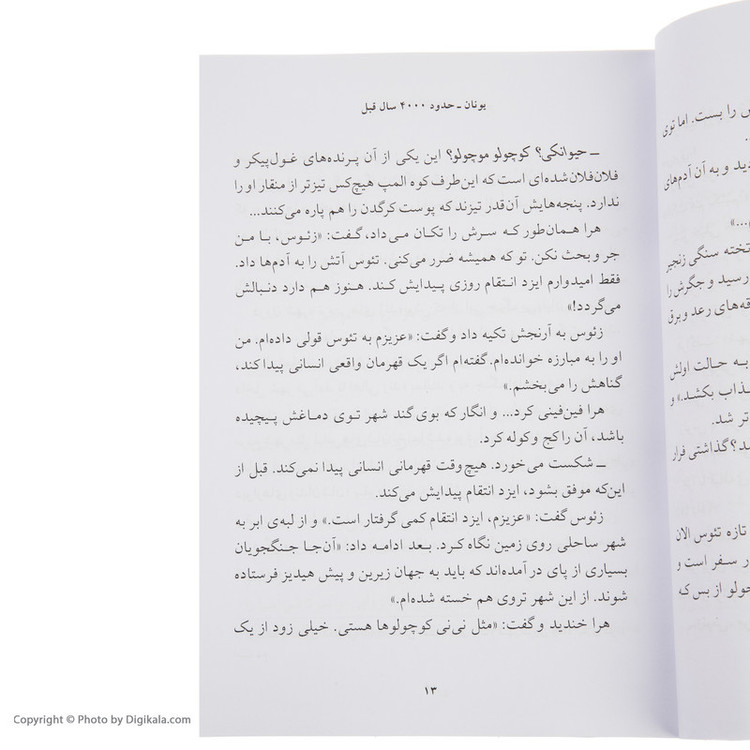 یونان ـ حدود ۴۰۰۰ سال قبل
ـ حیوانکی؟ کوچولو موچولو؟ این یکی از آن پرنده‌های غول‌پیکر و
فلان‌فلان‌شده‌ای است که این‌طرف کوه المپ هیچ‌کس تیزتر از منقار او را
ندارد. پنجه‌هایش آن‌قدر تیزند که پوست کرگدن را هم پاره می‌کنند...
هرا همان‌طور که سرش را تکان می‌داد، گفت: «زئوس، با من
جر و بحث نکن. تو که همیشه ضرر می‌کنی. تئوس آتش را به آدم‌ها داد.
فقط امیدوارم ایزد انتقام روزی پیدایش کند. هنوز هم دارد دنبالش
می‌گردد!»
زئوس به آرنجش تکیه داد و گفت: «عزیزم به تئوس قولی داده‌ام. من
او را به مبارزه خوانده‌ام. گفته‌ام اگر یک قهرمان واقعی انسانی پیدا کند،
گناهش را می‌بخشم.»
هرا فین‌فینی کرد... و انگار که بوی گند شهر توی دماغش پیچیده
باشد، آن را کج و کوله کرد.
ـ شکست می‌خورد. هیچ‌وقت قهرمانی انسانی پیدا نمی‌کند. قبل از
این‌که موفق بشود، ایزد انتقام پیدایش می‌کند.
زئوس گفت: «عزیزم، ایزد انتقام کمی گرفتار است.» و از لبه‌ی ابر به
شهر ساحلی روی زمین نگاه کرد. بعد ادامه داد: «آن‌جا جنگجویان
بسیاری از پای در آمده‌اند که باید به جهان زیرین و پیش هیدیز فرستاده
شوند. از این شهر تروی هم خسته شده‌ام.»
هرا خندید و گفت: «مثل نی‌نی کوچولوها هستی. خیلی زود از یک
۱۳
را بست. اما توی
ید و به آن آدم‌های
تخته سنگی زنجیر
رسید و جگرش را
قه‌های رعد و برق
به حالت اولش
ذاب بکشد.» و
تر شد.
شد؟ گذاشتی فرار
تازه تئوس الان
ر سفر است و
چولو از بس که
Copyright © Photo by Digikala.com